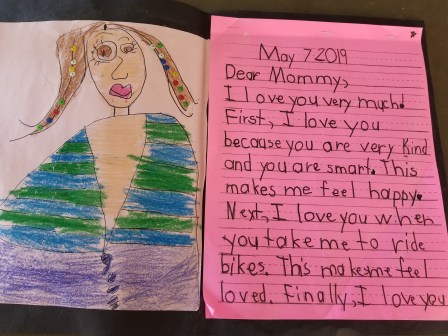 May 7 2019
Dear Mommy,
I love you very much!
First, I love you
because you are very kind
and you are smart. This
makes me feel happy.
Next, I love you when
you take me to ride
bikes. This makes me feel
loved. Finally, I love you